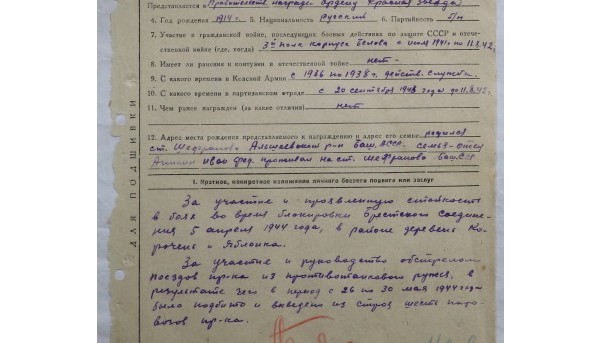 Представляется к Правительств. награде Ордену Красная Звезда
4. Год рождения 1914 г. 5. Национальность Русский 6. Партийность б/п
7. Участие в гражданской войне, последующих боевых действиях по защите СССР и отече-
ственной войне (где, когда) 3й полк корпуса Белова с июля 1941 по 11.8.42.
8. Имеет ли ранения и контузии в отечественной войне нет
9. С какого времени в Красной Армии с 1936 по 1938 г. действ. служба.
10. С какого времени в партизанском отряде с 20 сентября 1943 года до 11.8.42.
11. Чем ранее награжден (за какие отличия) нет
12. Адрес места рождения представляемого к награждению и адрес его семьи родился
ст. Шафраново Альшеевский р-н Баш. АССР. семья-отец
Иван Фед. проживал на ст. Шафраново Баш.ССР
ДЛЯ ПОДШИВКИ
I. Краткое, конкретное изложение личного боевого подвига или заслуг
За участие и проявленную стойкость
в боях во время блокировки Брестского соедине-
ния 5 апреля 1944 года, в районе деревень Ко-
рочень и Яблонка.
За участие и руководство обстрелом
поездов пр-ка из противотанкового ружья, в
результате чего в период с 26 по 30 мая 1944 года
было подбито и выведено из строя шесть паро-
возов пр-ка.